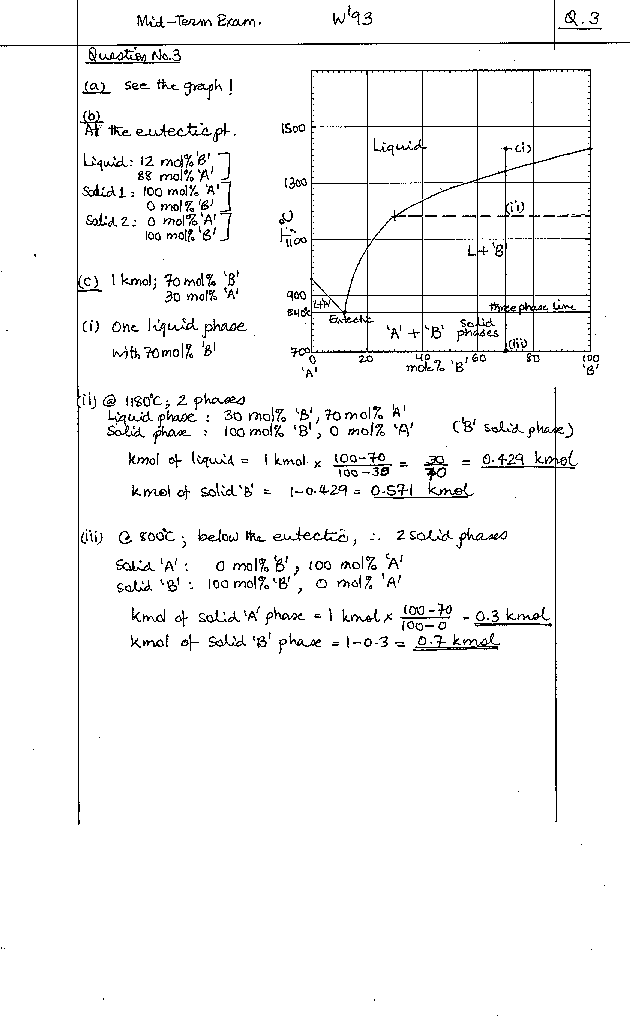 Mid-Term Exam. W'93 Q.3
Question No.3
(a) See the graph!
(b)
At the eutectic pt.
Liquid: 12 mol% 'B'
88 mol% 'A'
Solid 1: 100 mol% 'A'
0 mol% 'B'
Solid 2: 0 mol% 'A'
100 mol% 'B'
(c) 1 kmol; 70 mol% 'B'
30 mol% 'A'
(i) One liquid phase
with 70 mol% 'B'
1500
1300
1100
900
840
700
Liquid
(i)
(ii)
L+'B'
L+'A'
Eutectic
three phase line
'A' + 'B' Solid
phases
(iii)
0 20 40 60 80 100
'A' mole% 'B' 'B'
(ii) @ 1180°C; 2 phases
Liquid phase : 30 mol% 'B', 70 mol% 'A'
Solid phase : 100 mol% 'B', 0 mol% 'A' ('B' solid phase)
kmol of liquid = 1 kmol × (100-70)/(100-30) = 30/70 = 0.429 kmol
kmol of solid 'B' = 1-0.429 = 0.571 kmol
(iii) @ 800°C; below the eutectic, ∴ 2 solid phases
Solid 'A' : 0 mol% 'B', 100 mol% 'A'
Solid 'B' : 100 mol% 'B', 0 mol% 'A'
kmol of solid 'A' phase = 1 kmol × (100-70)/(100-0) = 0.3 kmol
kmol of solid 'B' phase = 1-0.3 = 0.7 kmol